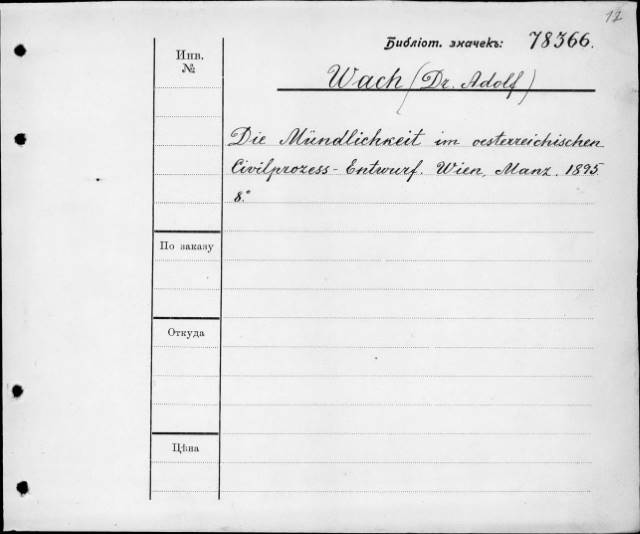 12
Библіот. значекъ: 78366.
Инв.
№
Wach (Dr. Adolf)
Die Mündlichkeit im oesterreichischen
Civilprozess - Entwurf. Wien, Manz. 1895.
8.°
По заказу
Откуда
Цѣна